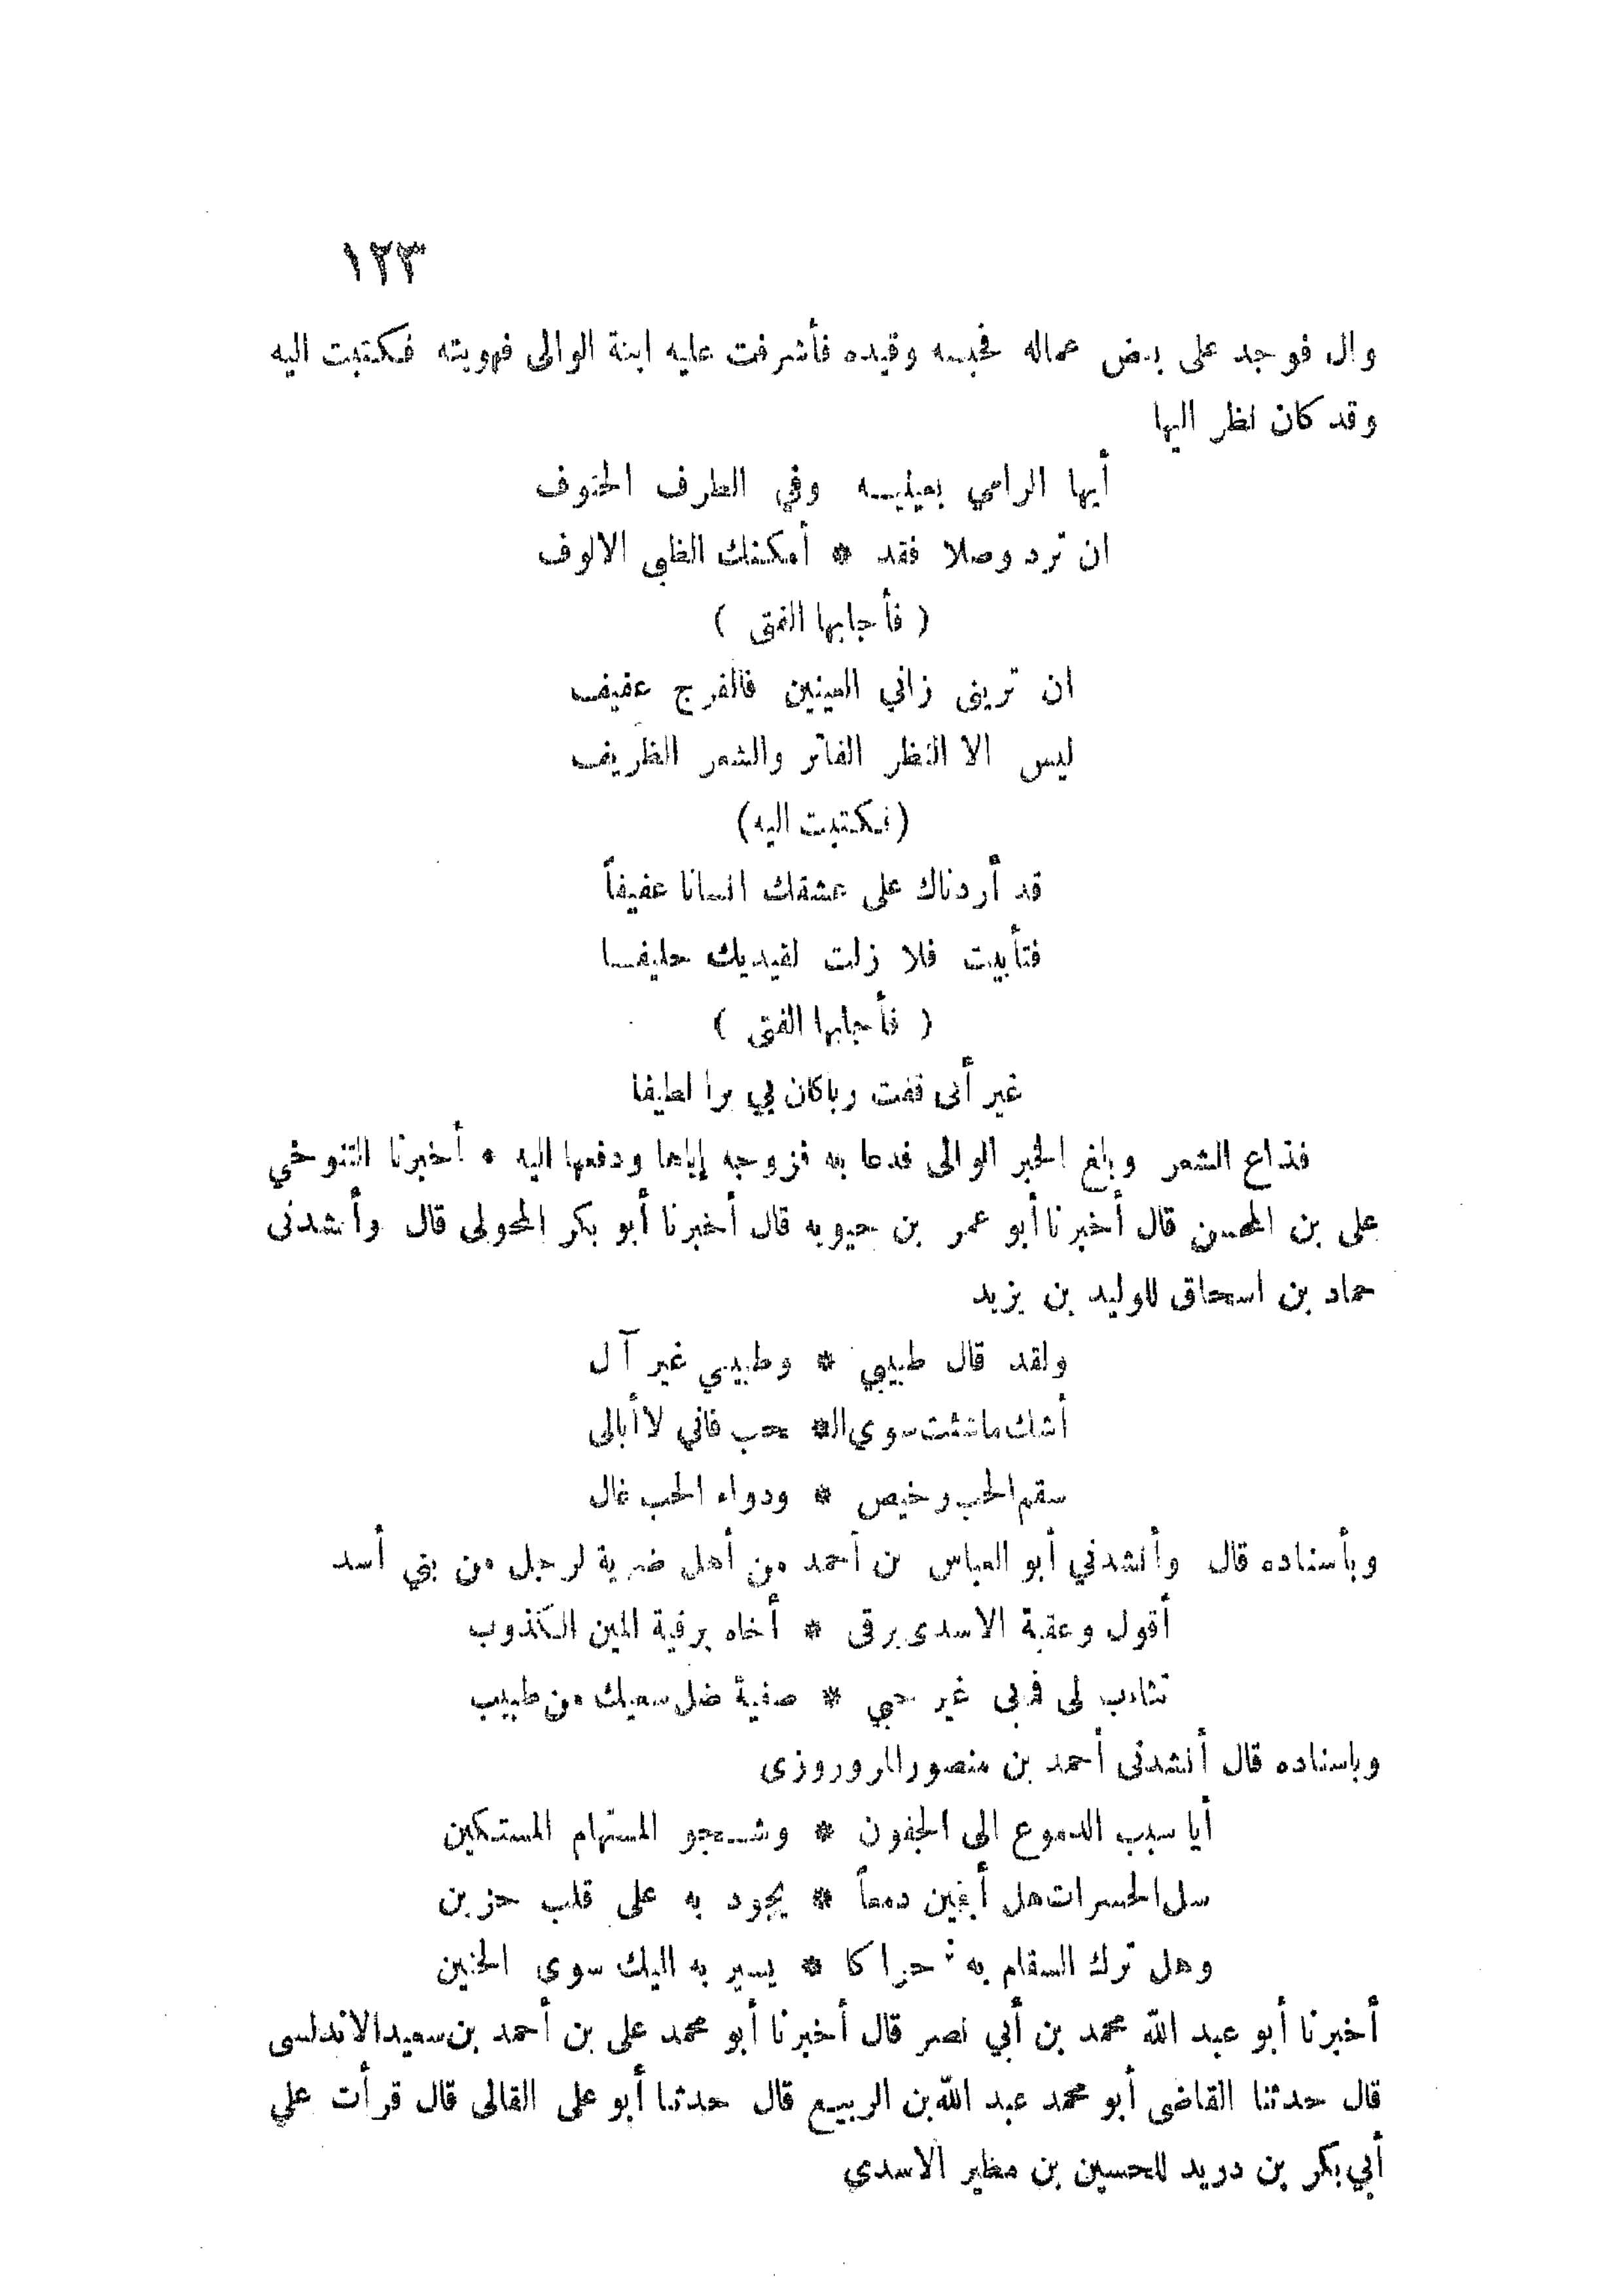 ١٢٣
وال فوجد على بعض عماله فحبسه وقيده فأشرفت عليه ابنة الوالى فهويته فكتبت اليه
وقد كان نظر اليها
أيها الرامي بعينيه وفي الطرف الحتوف
ان ترد وصلا فقد * أمكنك الظبى الالوف
( فأجابها الفتى )
ان ترينى زاني العينين فالفرج عفيف
ليس الا النظر الفاتر والشعر الظريف
(فكتبت اليه)
قد أردناك على عشقك انسانا عفيفاً
فتأبيت فلا زلت لقيديك حليفا
( فأجابها الفتى )
غير أنى خفت ربا كان بي برا لطيفا
فذاع الشعر وبلغ الخبر الوالى فدعا به فزوجه إياها ودفعها اليه • أخبرنا التنوخي
على بن المحسن قال أخبرنا أبو عمر بن حيويه قال أخبرنا أبو بكر المحولى قال وأنشدنى
حماد بن اسحاق للوليد بن يزيد
ولقد قال طبيبي * وطبيبي غير آل
أشك ما شئت سوي الـ * ـحب فاني لا أبالى
سقم الحب رخيص * ودواء الحب غال
وبأسناده قال وأنشدني أبو العباس بن أحمد من أهل ضرية لرجل من بني أسد
أقول وعقبة الاسدى يرقى * أخاه برقية المين الكذوب
تثاءب لى غير حبي * صفية ضل سعيك من طبيب
وباسناده قال أنشدنى أحمد بن منصور المروروزى
أيا سبب الدموع الى الجفون * وشجو المستهام المستكين
سل الحسرات هل أبقين دمعاً * يجود به على قلب حزين
وهل ترك السقام به حراكا * يسير به اليك سوى الحنين
أخبرنا أبو عبد الله محمد بن أبي نصر قال أخبرنا أبو محمد على بن أحمد بن سعيد الاندلسى
قال حدثنا القاضى أبو محمد عبد الله بن الربيع قال حدثنا أبو على القالى قال قرأت علي
أبي بكر بن دريد للحسين بن مطير الاسدى